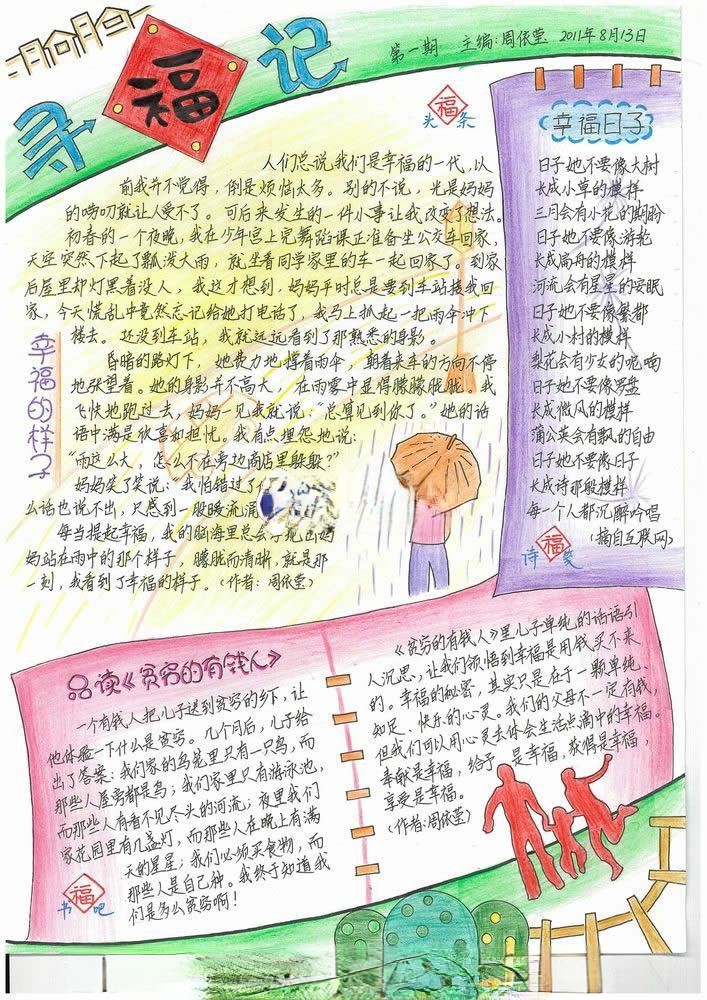 寻福记
第一期 主编:周依莹 2011年8月13日
福
头条
人们总说我们是幸福的一代,以
前我并不觉得,倒是烦恼太多。别的不说,光是妈妈
的唠叨就让人受不了。可后来发生的一件小事让我改变了想法。
初春的一个夜晚,我在少年宫上完舞蹈课正准备坐公交车回家,
天空突然下起了瓢泼大雨,就坐着同学家里的车一起回家了。到家
后屋里却灯黑着没人,我这才想到,妈妈平时总是要到车站接我回
家,今天慌乱中竟然忘记给她打电话了,我马上抓起一把雨伞冲下
楼去。还没到车站,我就远远看到了那熟悉的身影。
昏暗的路灯下,她费力地撑着雨伞,朝着来车的方向不停
地张望着。她的身影并不高大,在雨雾中显得朦朦胧胧。我
飞快地跑过去,妈妈一见我就说:“总算见到你了。”她的话
语中满是欣喜和担忧。我有点埋怨地说:
“雨这么大,怎么不在旁边商店里躲躲?”
妈妈笑了笑说:“我怕错过了
么话也说不出,只感到一股暖流涌
每当提起幸福,我的脑海里总会浮现出妈
妈站在雨中的那个样子,朦胧而清晰,就是那
一刻,我看到了幸福的样子。(作者:周依莹)
幸福的样子
幸福日子
日子她不要像大树
长成小草的模样
三月会有小花的期盼
日子她不要像游轮
长成扁舟的模样
河流会有星星的安眠
日子她不要像繁都
长成小村的模样
梨花会有少女的呢喃
日子她不要像罗盘
长成微风的模样
蒲公英会有飘的自由
日子她不要像日子
长成诗那般模样
每一个人都沉醉吟唱
(摘自互联网)
福
诗笺
品读《贫穷的有钱人》
一个有钱人把儿子送到贫穷的乡下,让
他体验一下什么是贫穷。几个月后,儿子给
出了答案:我们家的鸟笼里只有一只鸟,而
那些人屋旁都是鸟;我们家里只有游泳池,
而那些人有看不见尽头的河流;夜里我们
家花园里有几盏灯,而那些人在晚上有满
天的星星;我们必须买食物,而
那些人是自己种。我终于知道我
们是多么贫穷啊!
福
书吧
《贫穷的有钱人》里儿子单纯的话语引
人沉思,让我们领悟到幸福是用钱买不来
的。幸福的秘密,其实只是在于一颗单纯、
知足、快乐的心灵。我们的父母不一定有钱,
但我们可以用心灵去体会生活点滴中的幸福。
奉献是幸福,给予是幸福,获得是幸福,
享受是幸福。
(作者:周依莹)